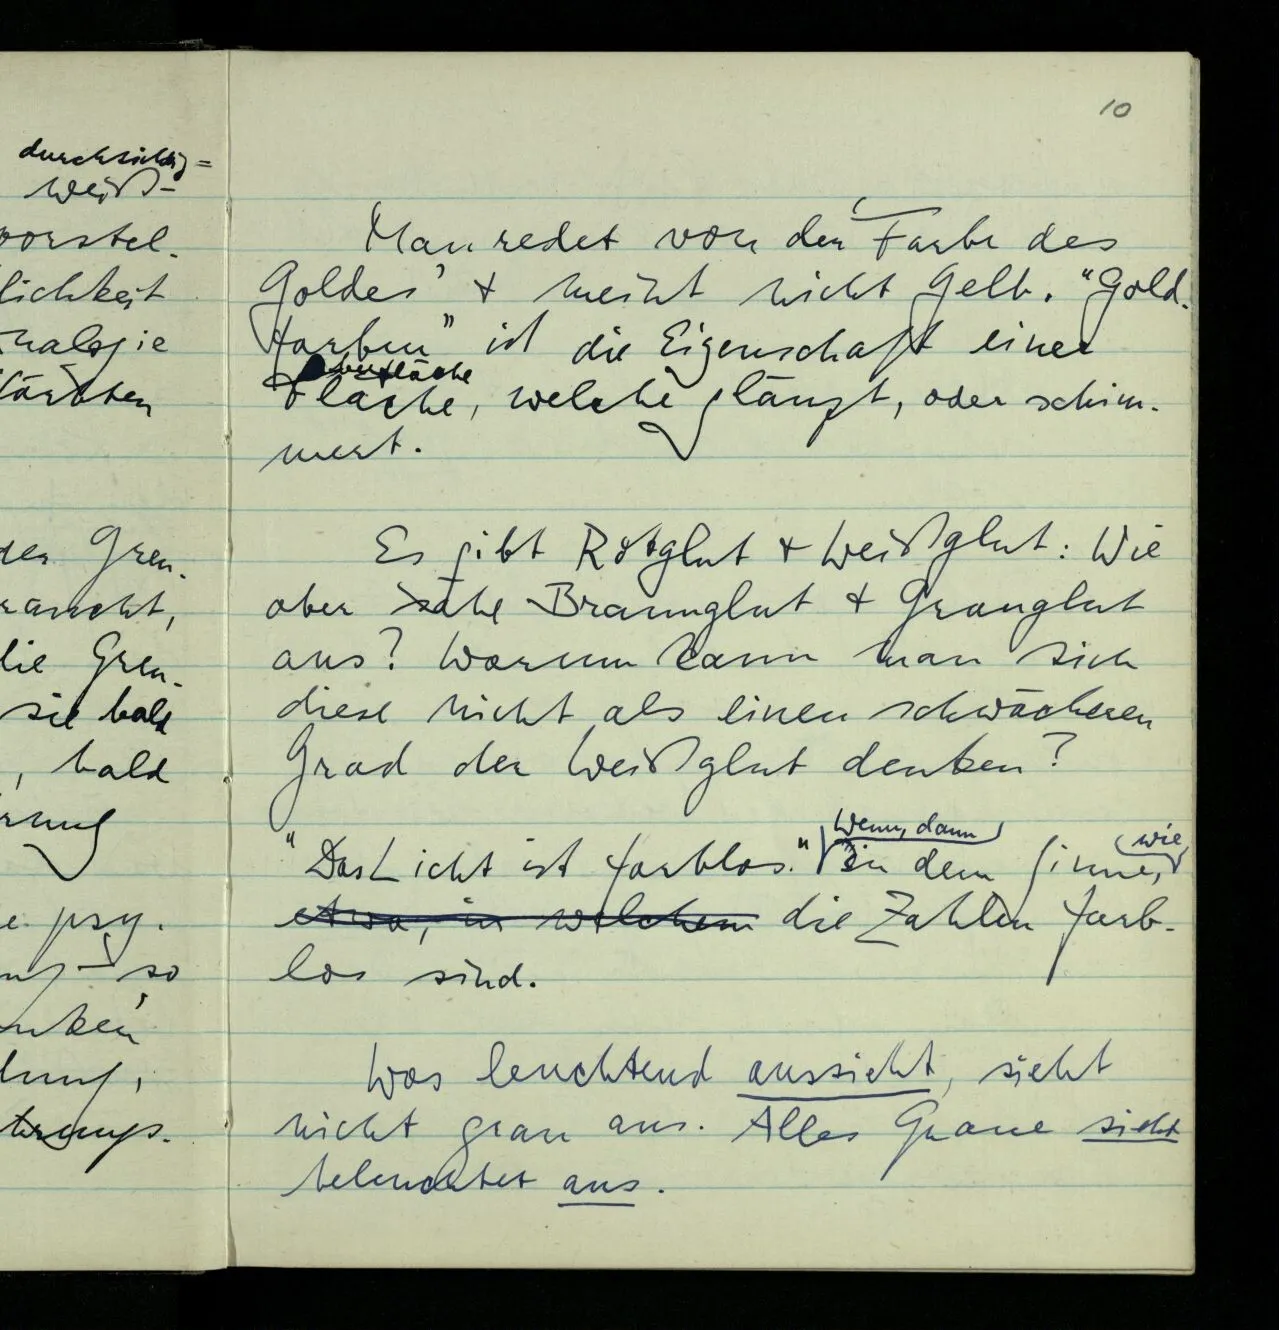 durchsichtig=
weiß-
vorstel-
lichkeit
nalogie
färbten
der Gren-
raucht,
die Gren-
sie bald
, bald
psy-
so
10
Man redet von der 'Farbe des
Goldes' & meint nicht Gelb. "Gold-
farben" ist die Eigenschaft einer
Oberfläche
Fläche, welche glänzt, oder schim-
mert.
Es gibt Rotglut & Weißglut: Wie
aber sähe Braunglut & Grauglut
aus? Warum kann man sich
diese nicht als einen schwächeren
Grad der Weißglut denken?
Wenn, dann wie
"Das Licht ist farblos." in dem Sinne,
etwa, in welchem die Zahlen farb-
los sind.
Was leuchtend aussieht, sieht
nicht grau aus. Alles Graue sieht
beleuchtet aus.